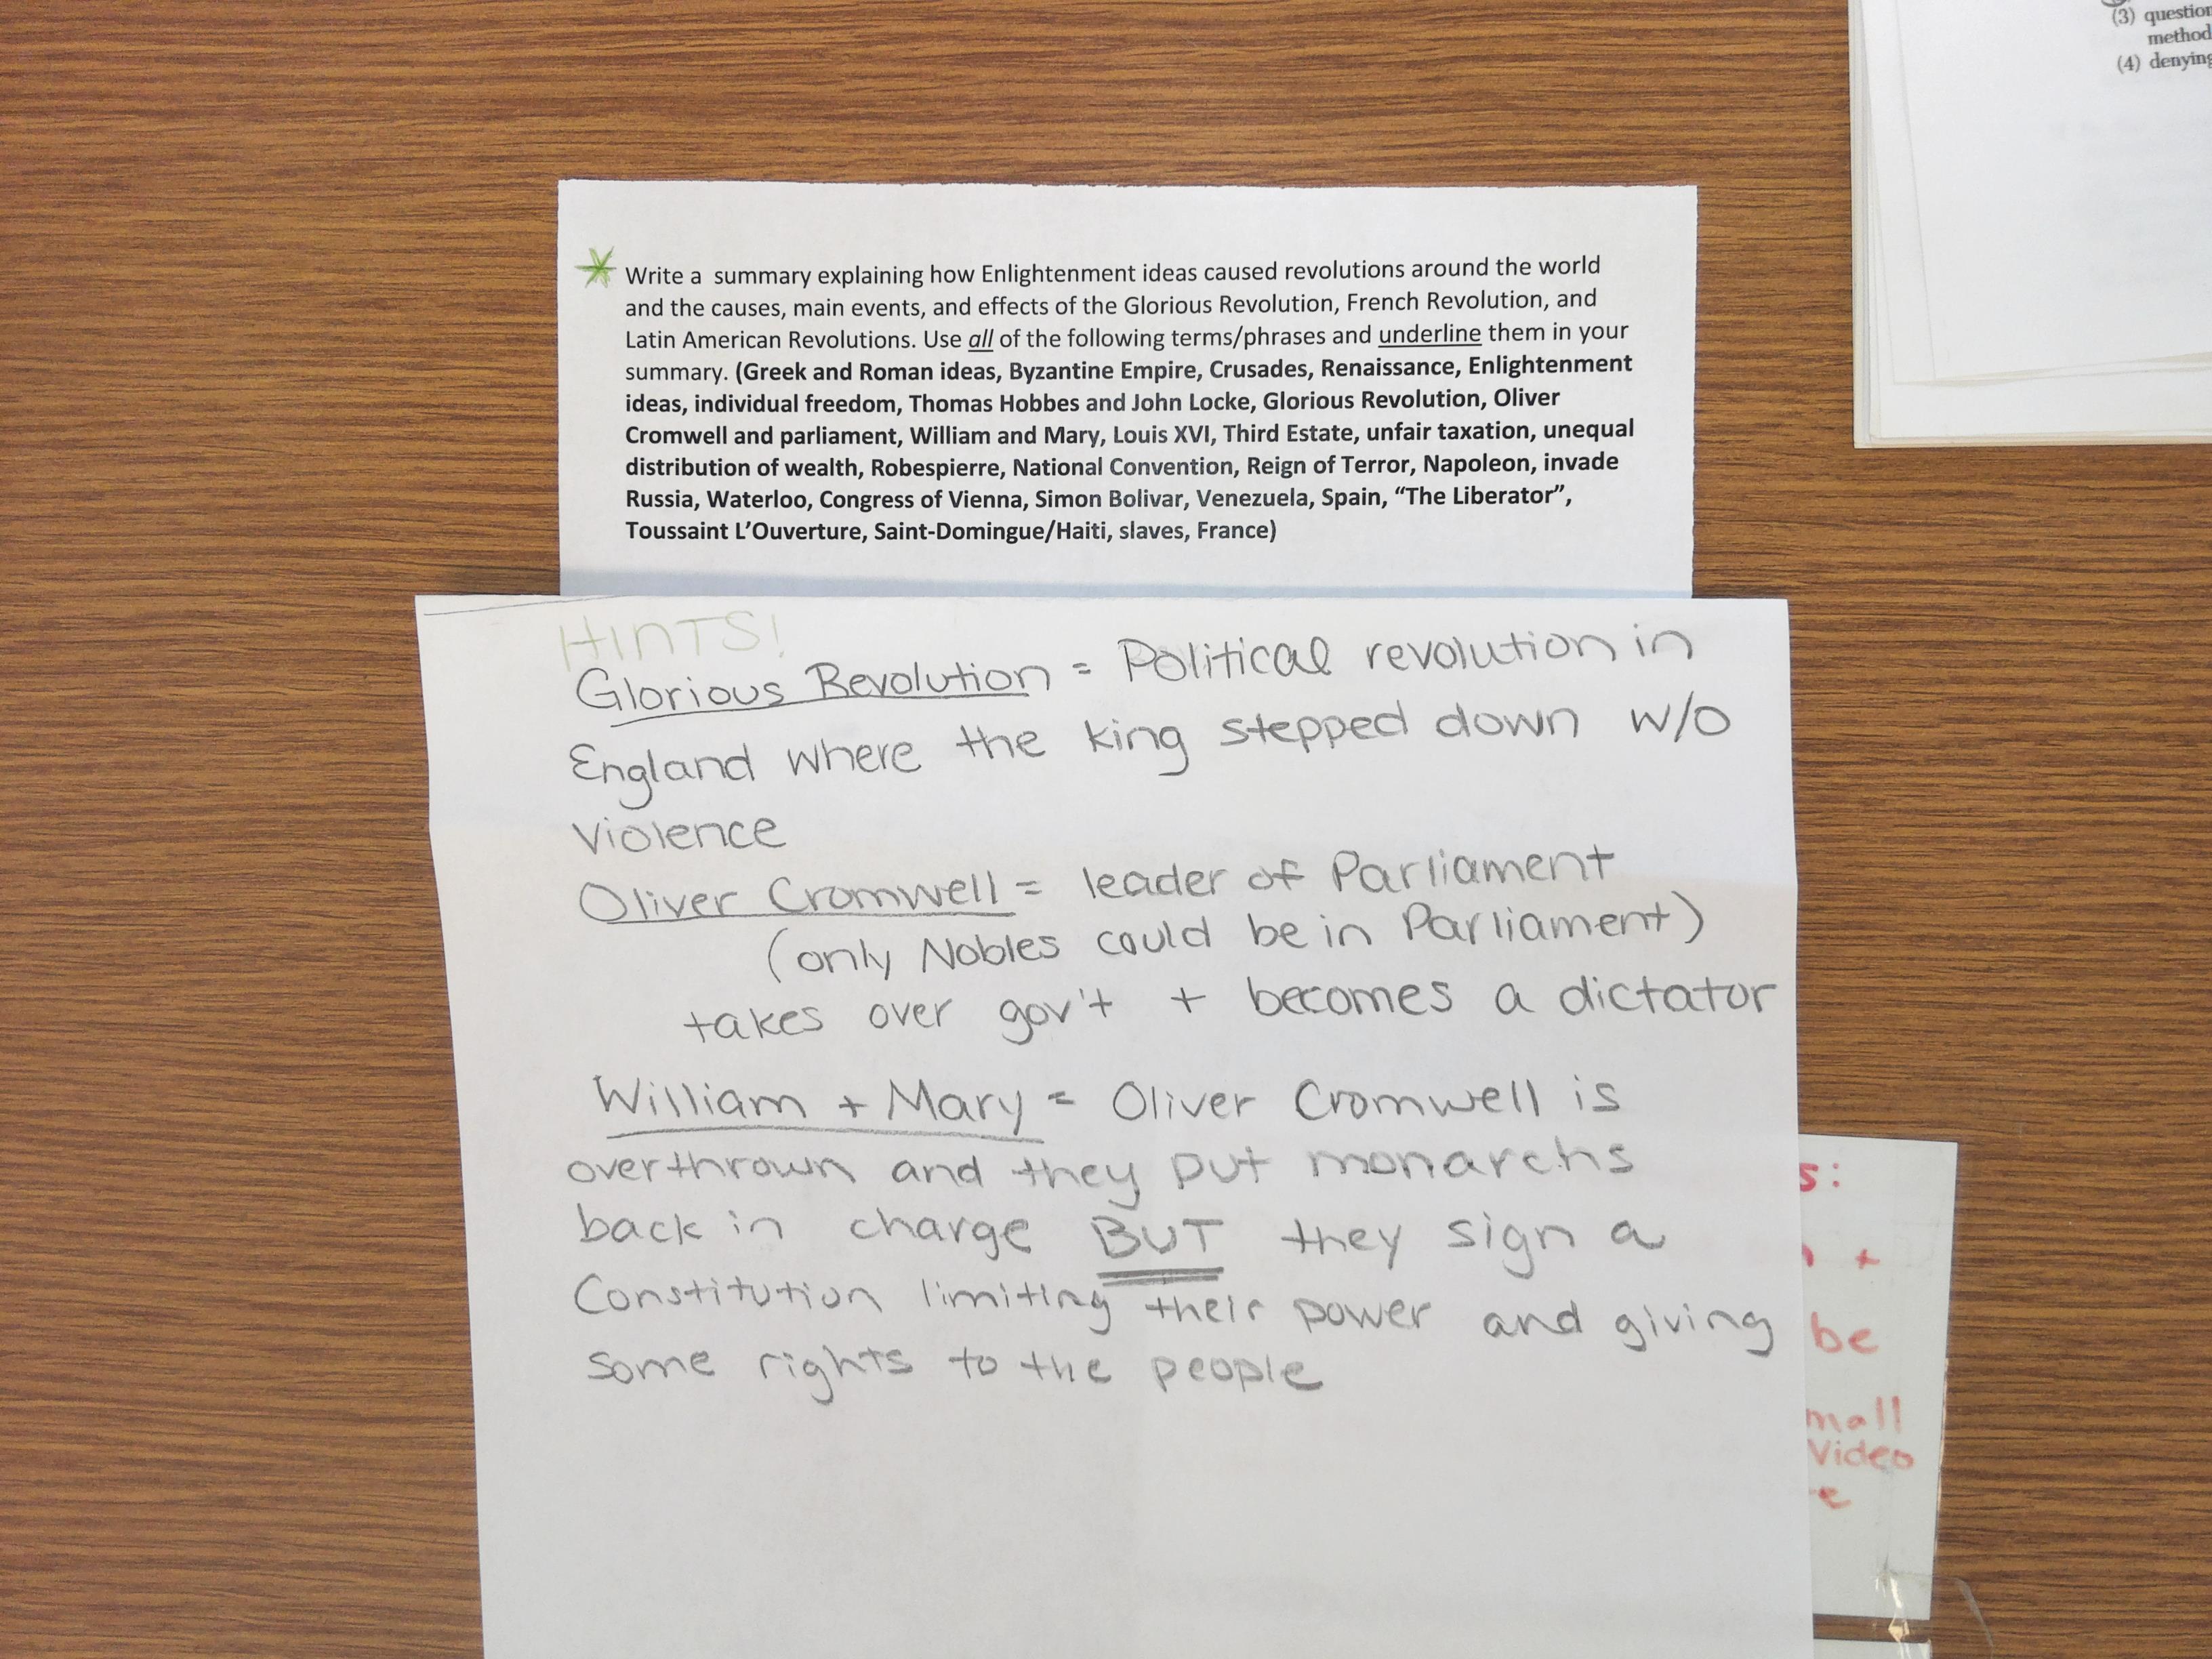 (3) question
method
(4) denying
Write a summary explaining how Enlightenment ideas caused revolutions around the world
and the causes, main events, and effects of the Glorious Revolution, French Revolution, and
Latin American Revolutions. Use all of the following terms/phrases and underline them in your
summary. (Greek and Roman ideas, Byzantine Empire, Crusades, Renaissance, Enlightenment
ideas, individual freedom, Thomas Hobbes and John Locke, Glorious Revolution, Oliver
Cromwell and parliament, William and Mary, Louis XVI, Third Estate, unfair taxation, unequal
distribution of wealth, Robespierre, National Convention, Reign of Terror, Napoleon, invade
Russia, Waterloo, Congress of Vienna, Simon Bolivar, Venezuela, Spain, “The Liberator”,
Toussaint L’Ouverture, Saint-Domingue/Haiti, slaves, France)
HINTS!
Glorious Revolution = Political revolution in
England where the king stepped down w/o
violence
Oliver Cromwell = leader of Parliament
(only Nobles could be in Parliament)
takes over gov't + becomes a dictator
William + Mary = Oliver Cromwell is
overthrown and they put monarchs
back in charge BUT they sign a
Constitution limiting their power and giving
some rights to the people
s:
+
be
mall
Video
e